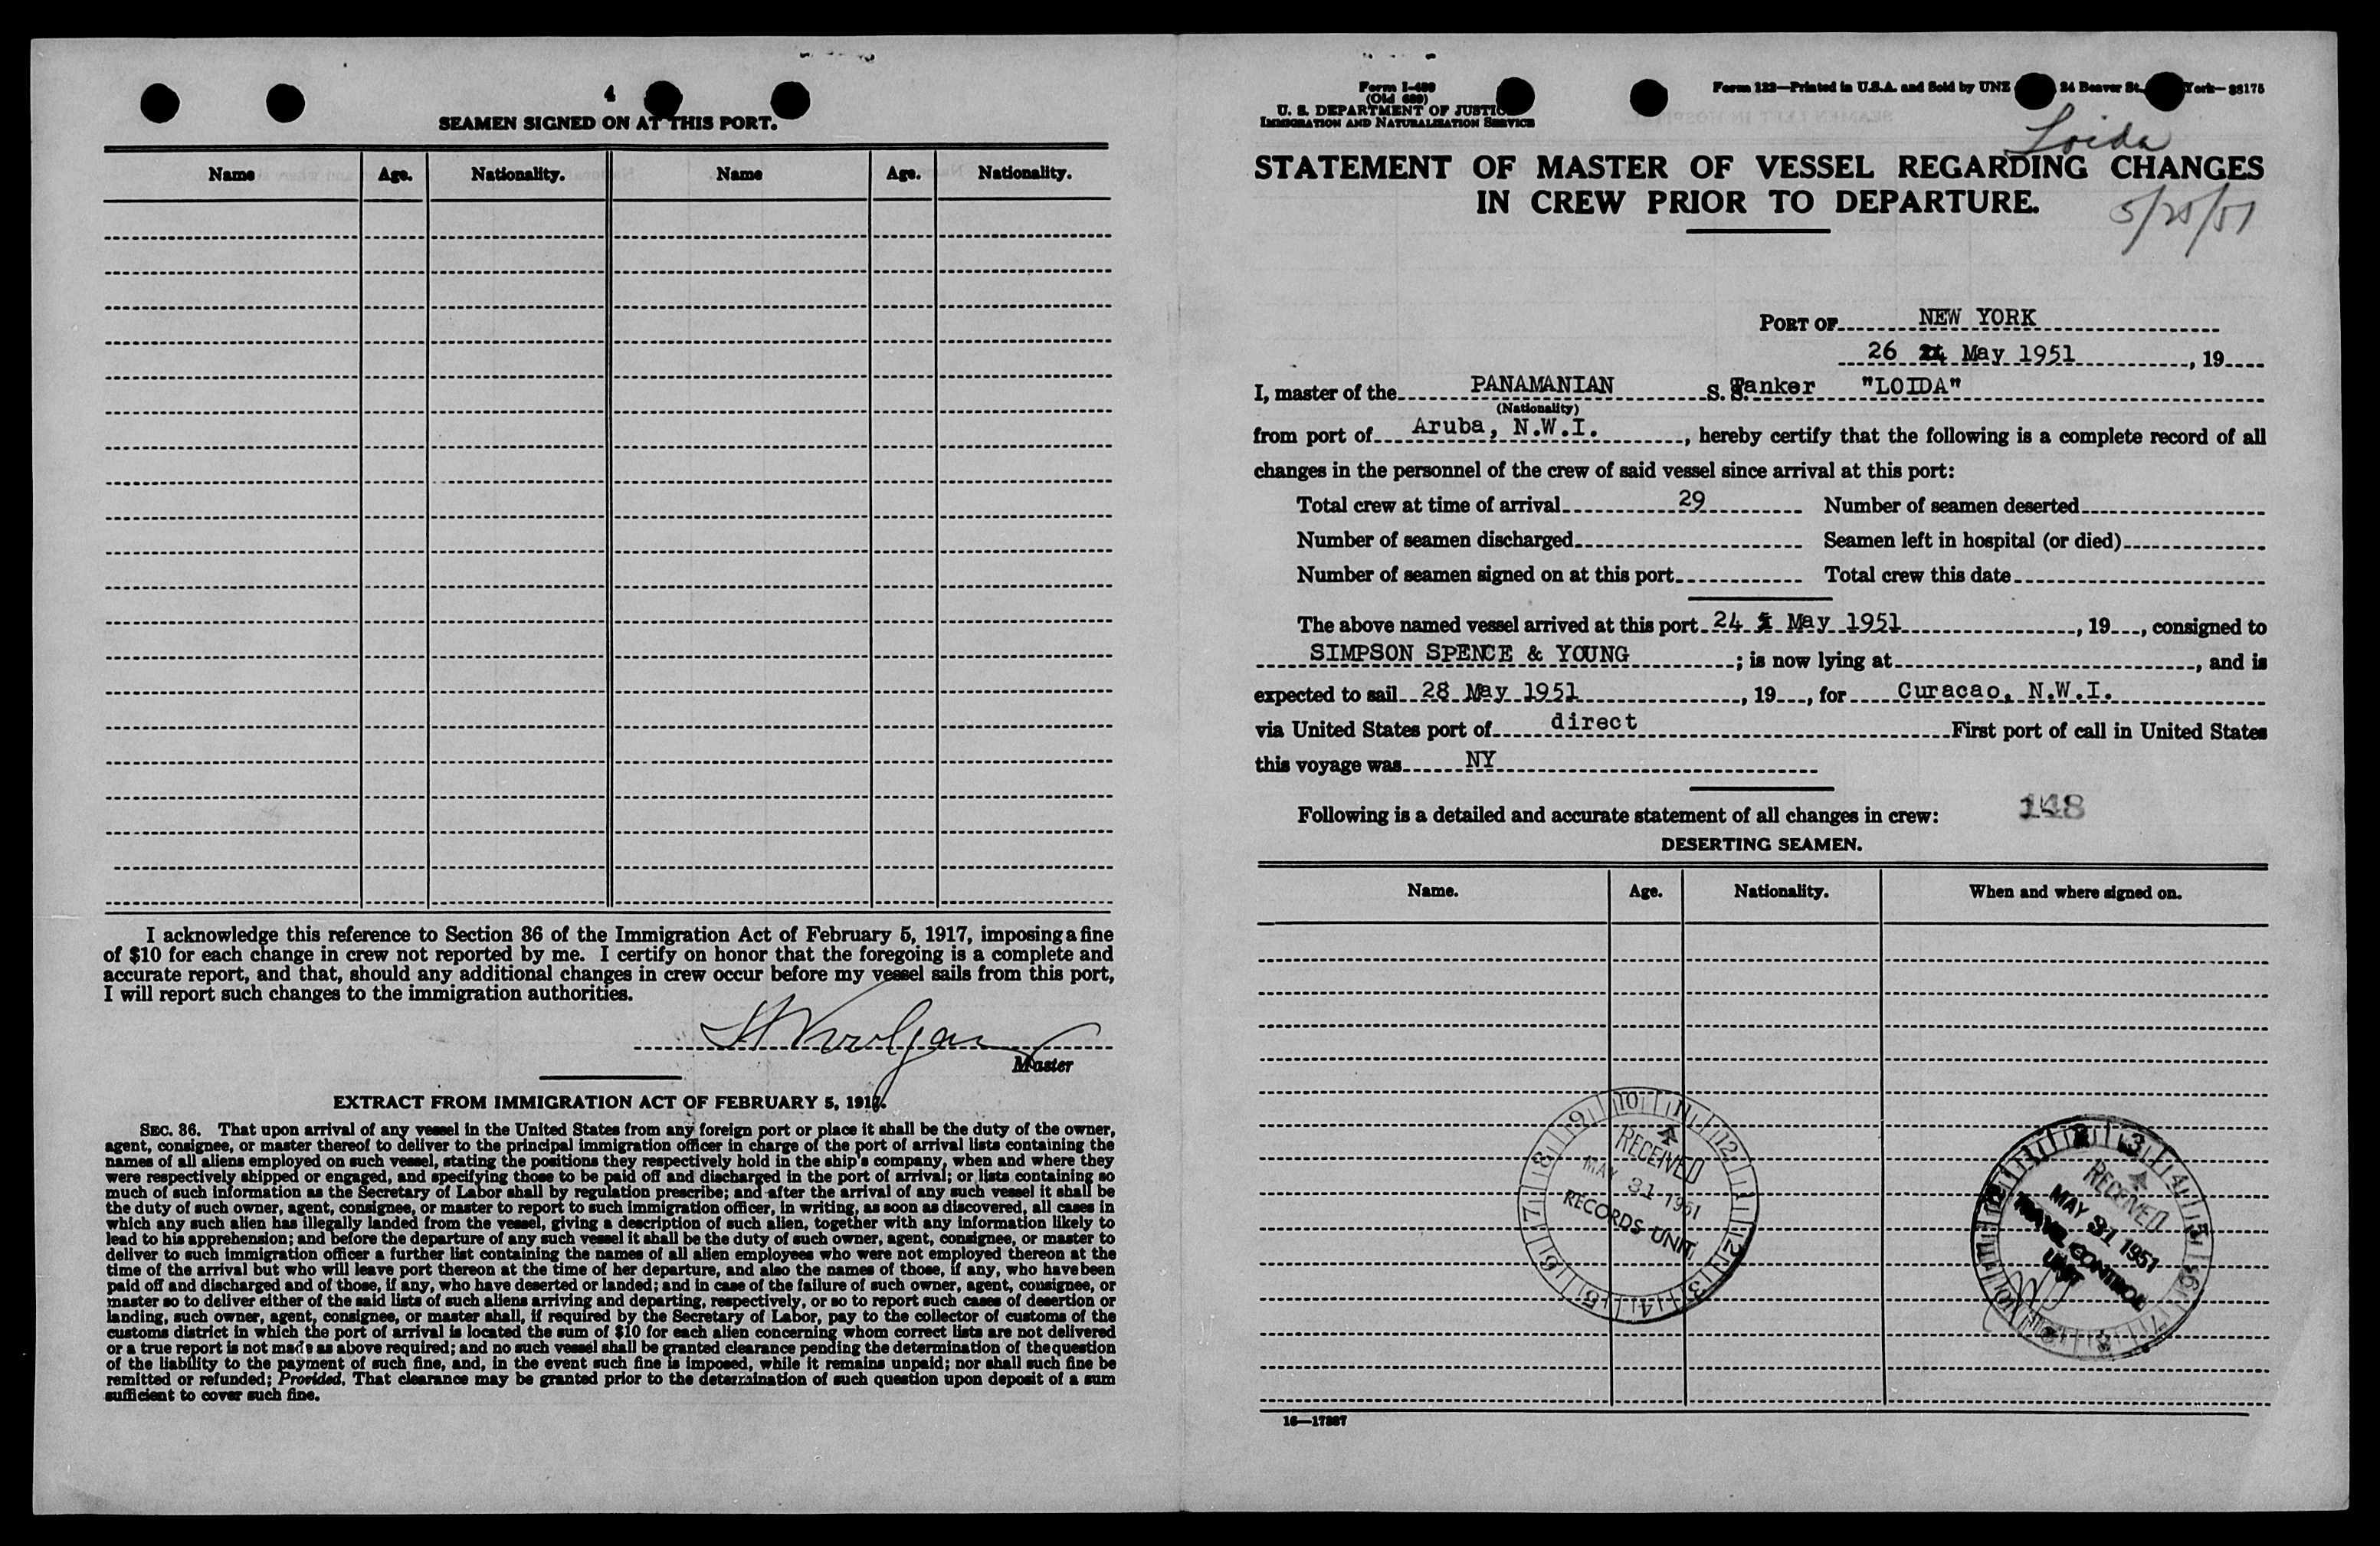 4
SEAMEN SIGNED ON AT THIS PORT.
Name Age. Nationality. Name Age. Nationality.
I acknowledge this reference to Section 36 of the Immigration Act of February 5, 1917, imposing a fine
of $10 for each change in crew not reported by me. I certify on honor that the foregoing is a complete and
accurate report, and that, should any additional changes in crew occur before my vessel sails from this port,
I will report such changes to the immigration authorities.
Master
EXTRACT FROM IMMIGRATION ACT OF FEBRUARY 5, 1917.
SEC. 36. That upon arrival of any vessel in the United States from any foreign port or place it shall be the duty of the owner,
agent, consignee, or master thereof to deliver to the principal immigration officer in charge of the port of arrival lists containing the
names of all aliens employed on such vessel, stating the positions they respectively hold in the ship's company, when and where they
were respectively shipped or engaged, and specifying those to be paid off and discharged in the port of arrival; or lists containing so
much of such information as the Secretary of Labor shall by regulation prescribe; and after the arrival of any such vessel it shall be
the duty of such owner, agent, consignee, or master to report to such immigration officer, in writing, as soon as discovered, all cases in
which any such alien has illegally landed from the vessel, giving a description of such alien, together with any information likely to
lead to his apprehension; and before the departure of any such vessel it shall be the duty of such owner, agent, consignee, or master to
deliver to such immigration officer a further list containing the names of all alien employees who were not employed thereon at the
time of the arrival but who will leave port thereon at the time of her departure, and also the names of those, if any, who have been
paid off and discharged and of those, if any, who have deserted or landed; and in case of the failure of such owner, agent, consignee, or
master so to deliver either of the said lists of such aliens arriving and departing, respectively, or so to report such cases of desertion or
landing, such owner, agent, consignee, or master shall, if required by the Secretary of Labor, pay to the collector of customs of the
customs district in which the port of arrival is located the sum of $10 for each alien concerning whom correct lists are not delivered
or a true report is not made as above required; and no such vessel shall be granted clearance pending the determination of the question
of the liability to the payment of such fine, and, in the event such fine is imposed, while it remains unpaid; nor shall such fine be
remitted or refunded; Provided, That clearance may be granted prior to the determination of such question upon deposit of a sum
sufficient to cover such fine.
Form I-489
(Old 689)
U. S. DEPARTMENT OF JUSTIC
IMMIGRATION AND NATURALIZATION SERVICE
Form 122—Printed in U.S.A. and Sold by UNZ 24 Beaver St. York—28175
Loida
STATEMENT OF MASTER OF VESSEL REGARDING CHANGES
IN CREW PRIOR TO DEPARTURE.
5/25/51
PORT OF NEW YORK
26 May 1951, 19
I, master of the PANAMANIAN S. S. Tanker "LOIDA"
(Nationality)
from port of Aruba, N.W.I., hereby certify that the following is a complete record of all
changes in the personnel of the crew of said vessel since arrival at this port:
Total crew at time of arrival 29 Number of seamen deserted
Number of seamen discharged Seamen left in hospital (or died)
Number of seamen signed on at this port Total crew this date
The above named vessel arrived at this port 24 May 1951, 19, consigned to
SIMPSON SPENCE & YOUNG; is now lying at, and is
expected to sail 28 May 1951, 19, for Curacao, N.W.I.
via United States port of direct First port of call in United States
this voyage was NY
Following is a detailed and accurate statement of all changes in crew: 148
DESERTING SEAMEN.
Name. Age. Nationality. When and where signed on.
RECEIVED
MAY 31 1951
RECORDS UNIT
RECEIVED
MAY 31 1951
TRAVEL CONTROL
UNIT
16—17887